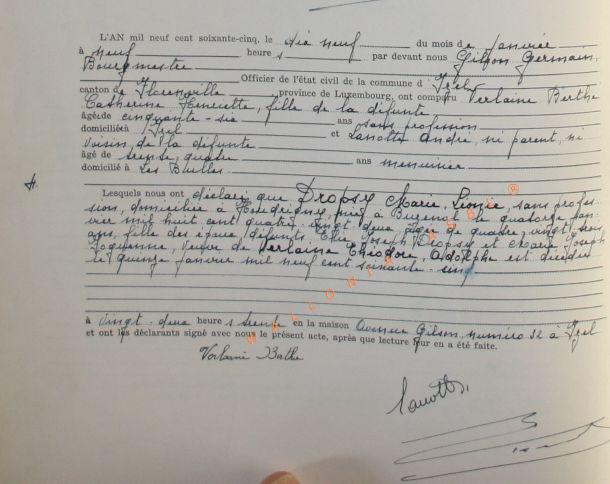 L'AN mil neuf cent soixante-cinq, le dix neuf du mois de janvier
à neuf heures par devant nous Gilson Germain,
Bourgmestre
Officier de l'état civil de la commune d'Izel
canton de Florenville province de Luxembourg, ont comparu Verlaine Berthe
Catherine Henriette, fille de la défunte
âgée de cinquante-six ans sans profession
domiciliée à Izel et Lanotte André, ni parent, ni
voisin, de la défunte
âgé de trente, quatre ans menuisier
domicilié à Les Bulles
Lesquels nous ont déclaré que Dropsy Marie, Léonie, sans profes-
sion, domiciliée à née à Buzenol le quatorze jan-
vier mil huit cent quatre-vingt-deux, âgée de quatre, vingt, trois
ans, fille des époux, défunts, Joseph Dropsy et Marie Joseph
veuve de Verlaine Théodore, Adolphe est décédée
le quinze janvier mil neuf cent soixante-cinq
à vingt-deux heures trente en la maison Avenue Gilson, numéro 32 à Izel
et ont les déclarants signé avec nous le présent acte, après que lecture leur en a été faite.
Verlaine Berthe
Lanotte